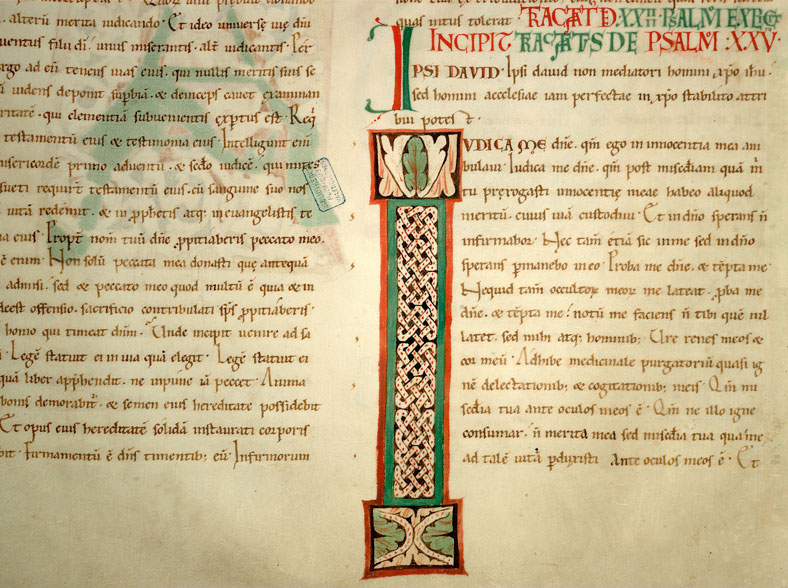 alteru merita iudicando. Et ideo universe vie dni
ventus filii di. unus miserantis. alt iudicantis. Per
ergo ad eu tenens vias eius. qui nullis meritis suis se
videns deponit supbia. & deinceps cavet examinan
ritate. qui elementia subvenientis exptus est. Req
testamentu eius & testimonia eius. Intelligunt eni
misericorde primo adventu. & scdo iudice. qui mites
sueti requirt testamentu eius. cu sanguine suo nos
vita redemit. & in pphetis atq; in evangelistis te
a eius. Propt nom tuu dne ppitiaberis peccato meo.
e enim. Non solu peccata mea donasti que antequa
admisi. sed & peccato meo quod multu e quia & in
offensio. sacrificio contribulati sps ppitiaberis
homo qui timeat dnm. Unde incipit venire ad sa
Lege statuit ei in via qua elegit. Lege statuit ei
qua liber apphendit. ne inpune ia peccet. Anima
bonis demorabit. & semen eius hereditate possidebit
Et opus eius hereditate solida instaurati corporis
bit. Firmamentu e dns timentib; eu. Infirmorum
quas intus tolerat. TRACTAT D. XXIIII PSALM EXPLIC
INCIPIT TRACTATS DE PSALM XXV.
IPSI DAVID. Ipsi david non mediatori homini xpo ihu.
sed homini aecclesiae iam perfectae in xpo stabilito attri
bui potest.
IUDICA ME dne. qm ego in innocentia mea am
bulavi. Iudica me dne. qm post misedia qua m
tu prerogasti innocentie meae habeo aliquod
meritu. cuius via custodivi. Et in dno sperans n
infirmabor. Nec tam etia sic in me sed in dno
sperans pmanebo in eo. Proba me dne. & tepta me
Nequid tam occultor meor me lateat. pba me
dne. & tepta me. notu me faciens n tibi que nil
latet. sed mihi atq; hominib; Ure renes meos &
cor meu. Adhibe medicinale purgatoriu quasi ig
ne delectationib; & cogitationib; meis. Qm mi
sedia tua ante oculos meos e. Qm ne illo igne
consumar. n merita mea sed misedia tua qua me
ad tale vita pduxisti ante oculos meos e. Et